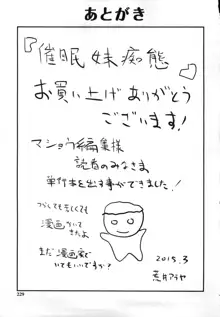 あとがき
『催眠妹痴態』
お買い上げありがとう
ございます!
マショウ編集様
読者のみなさま
単行本を出す事ができました!
つらくても苦しくても
漫画かいて
きたよ
まだ漫画家で
いてもいいですか?
2015.3
229